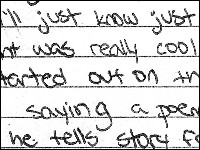 'll just know just
nt was really cool
tarted out on th
saying a poem
he tells story fo